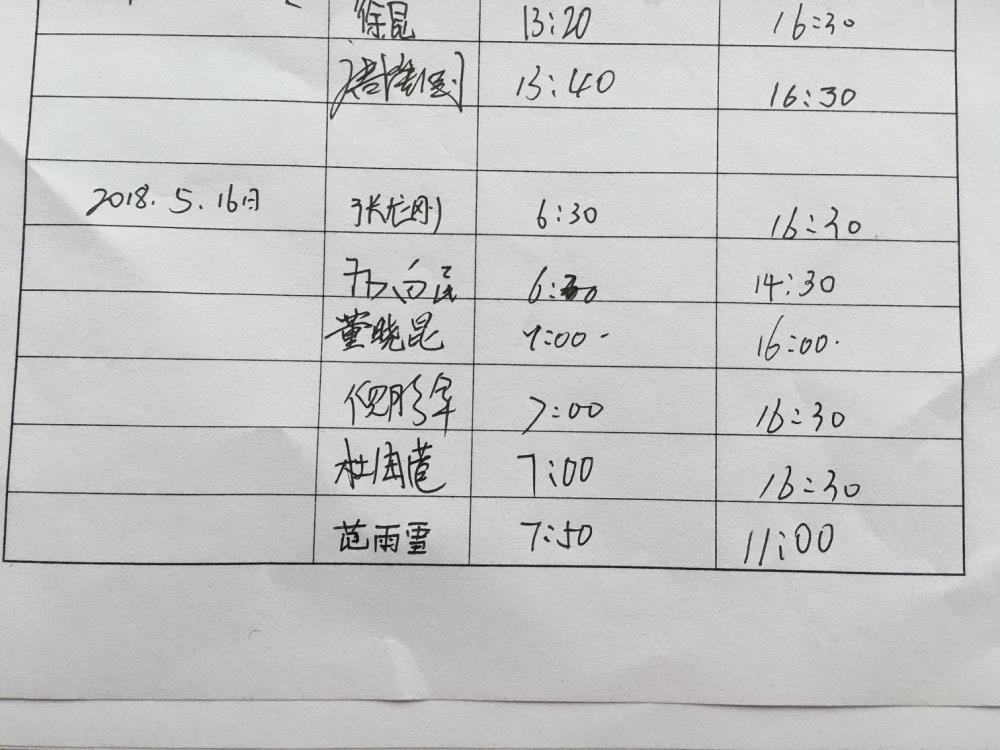 徐昆 13:20 16:30
13:40 16:30
2018.5.16日 张龙刚 6:30 16:30
6:30 14:30
董晓昆 7:00 16:00
倪彤军 7:00 16:30
杜国苞 7:00 16:30
范雨雪 7:50 11:00